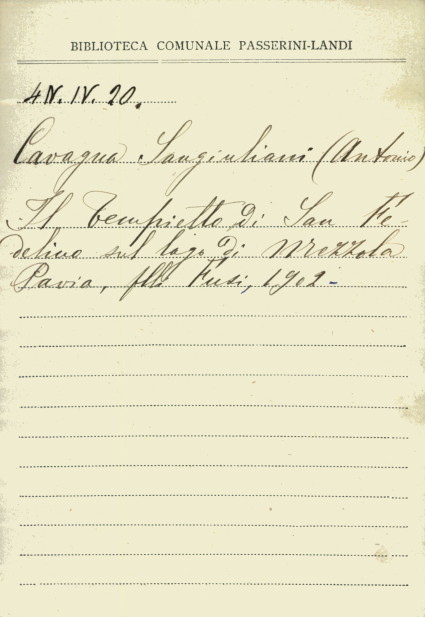 BIBLIOTECA COMUNALE PASSERINI-LANDI
4N.IV.20.
Cavagna Sangiuliani (Antonio)
Il Tempietto di San Fe-
delino sul lago di Mezzola
Pavia, flli Fusi, 1902-